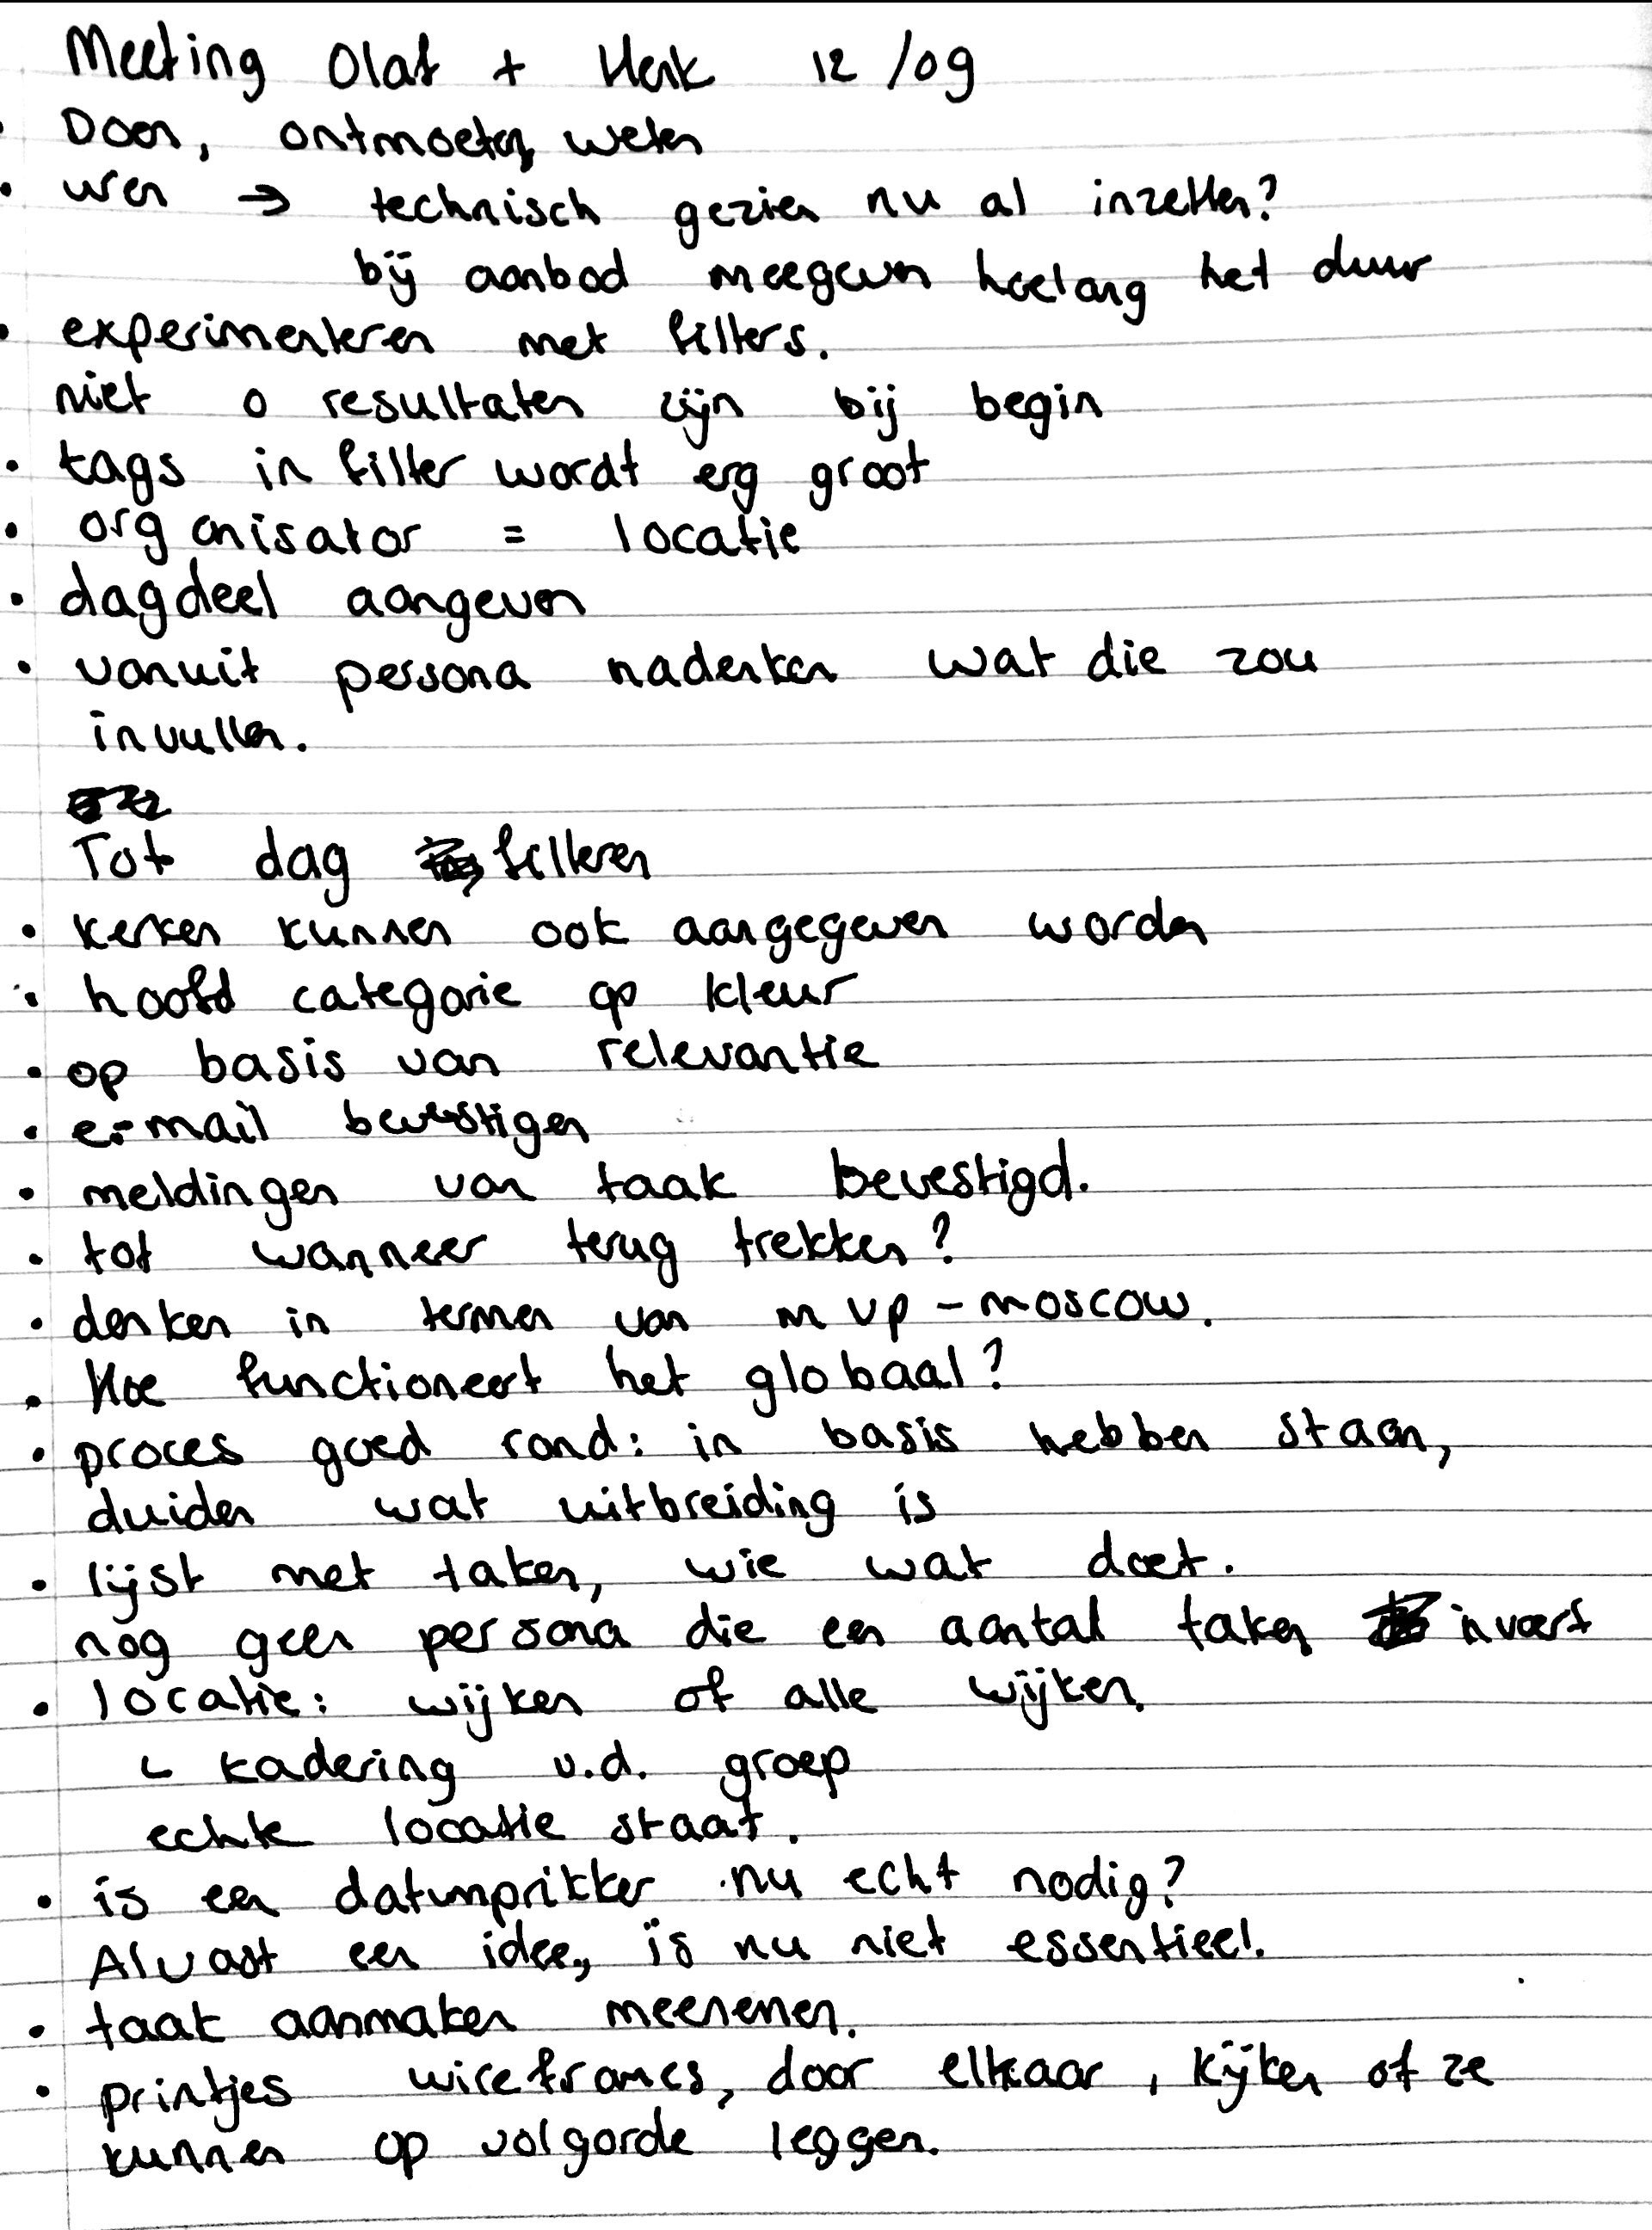 Meeting Olaf + Henk 12/09
• Doen, ontmoeten, weten
• uren → technisch gezien nu al inzetten?
bij aanbod meegeven hoelang het duur
• experimenteren met filters.
niet 0 resultaten zijn bij begin
• tags in filter wordt erg groot
• organisator = locatie
• dagdeel aangeven
• vanuit persona nadenken wat die zou
invullen.
Tot dag filteren
• kerken kunnen ook aangegeven worden
• hoofd categorie op kleur
• op basis van relevantie
• e-mail bevestigen
• meldingen van taak bevestigd.
• tot wanneer terug trekken?
• denken in termen van mvp - moscow.
• Hoe functioneert het globaal?
• proces goed rond: in basis hebben staan,
duiden wat uitbreiding is
• lijst met taken, wie wat doet.
nog geen persona die een aantal taken invoert
• locatie: wijken of alle wijken.
↳ kadering v.d. groep
echte locatie staat.
• is een datumprikker nu echt nodig?
Alvast een idee, is nu niet essentieel.
• taak aanmaken meenemen.
• printjes wireframes, door elkaar, kijken of ze
kunnen op volgorde leggen.